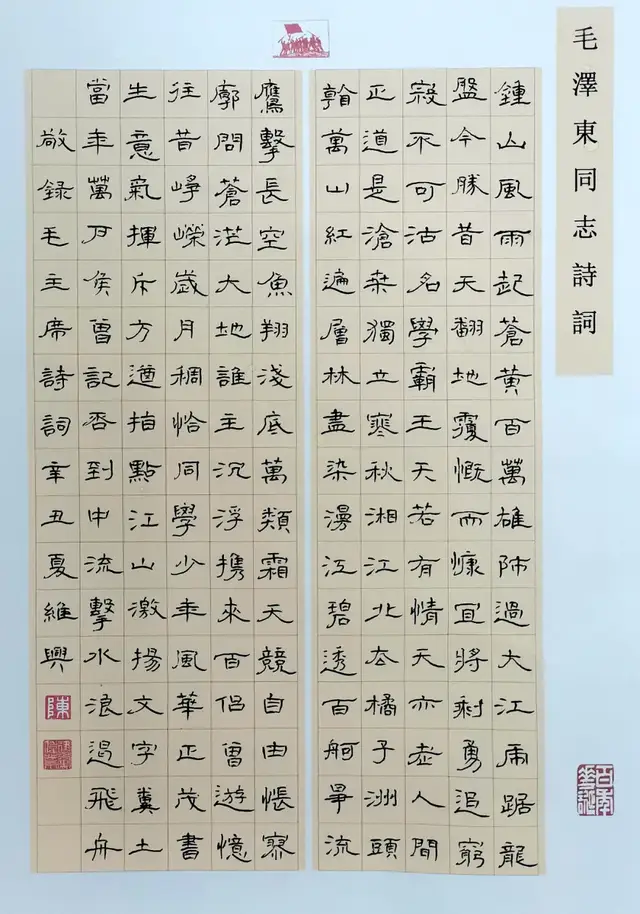 毛澤東同志詩詞
鍾山風雨起蒼黃百萬雄師過大江虎踞龍
盤今勝昔天翻地覆慨而慷宜將剩勇追窮
寇不可沽名學霸王天若有情天亦老人間
正道是滄桑獨立寒秋湘江北去橘子洲頭
看萬山紅遍層林盡染漫江碧透百舸爭流
鷹擊長空魚翔淺底萬類霜天競自由悵寥
廓問蒼茫大地誰主沉浮携來百侶曾遊憶
往昔崢嶸歲月稠恰同學少年風華正茂書
生意氣揮斥方遒指點江山激揚文字糞土
當年萬戶侯曾記否到中流擊水浪遏飛舟
敬錄毛主席詩詞辛丑夏維興
陳
百年華誕